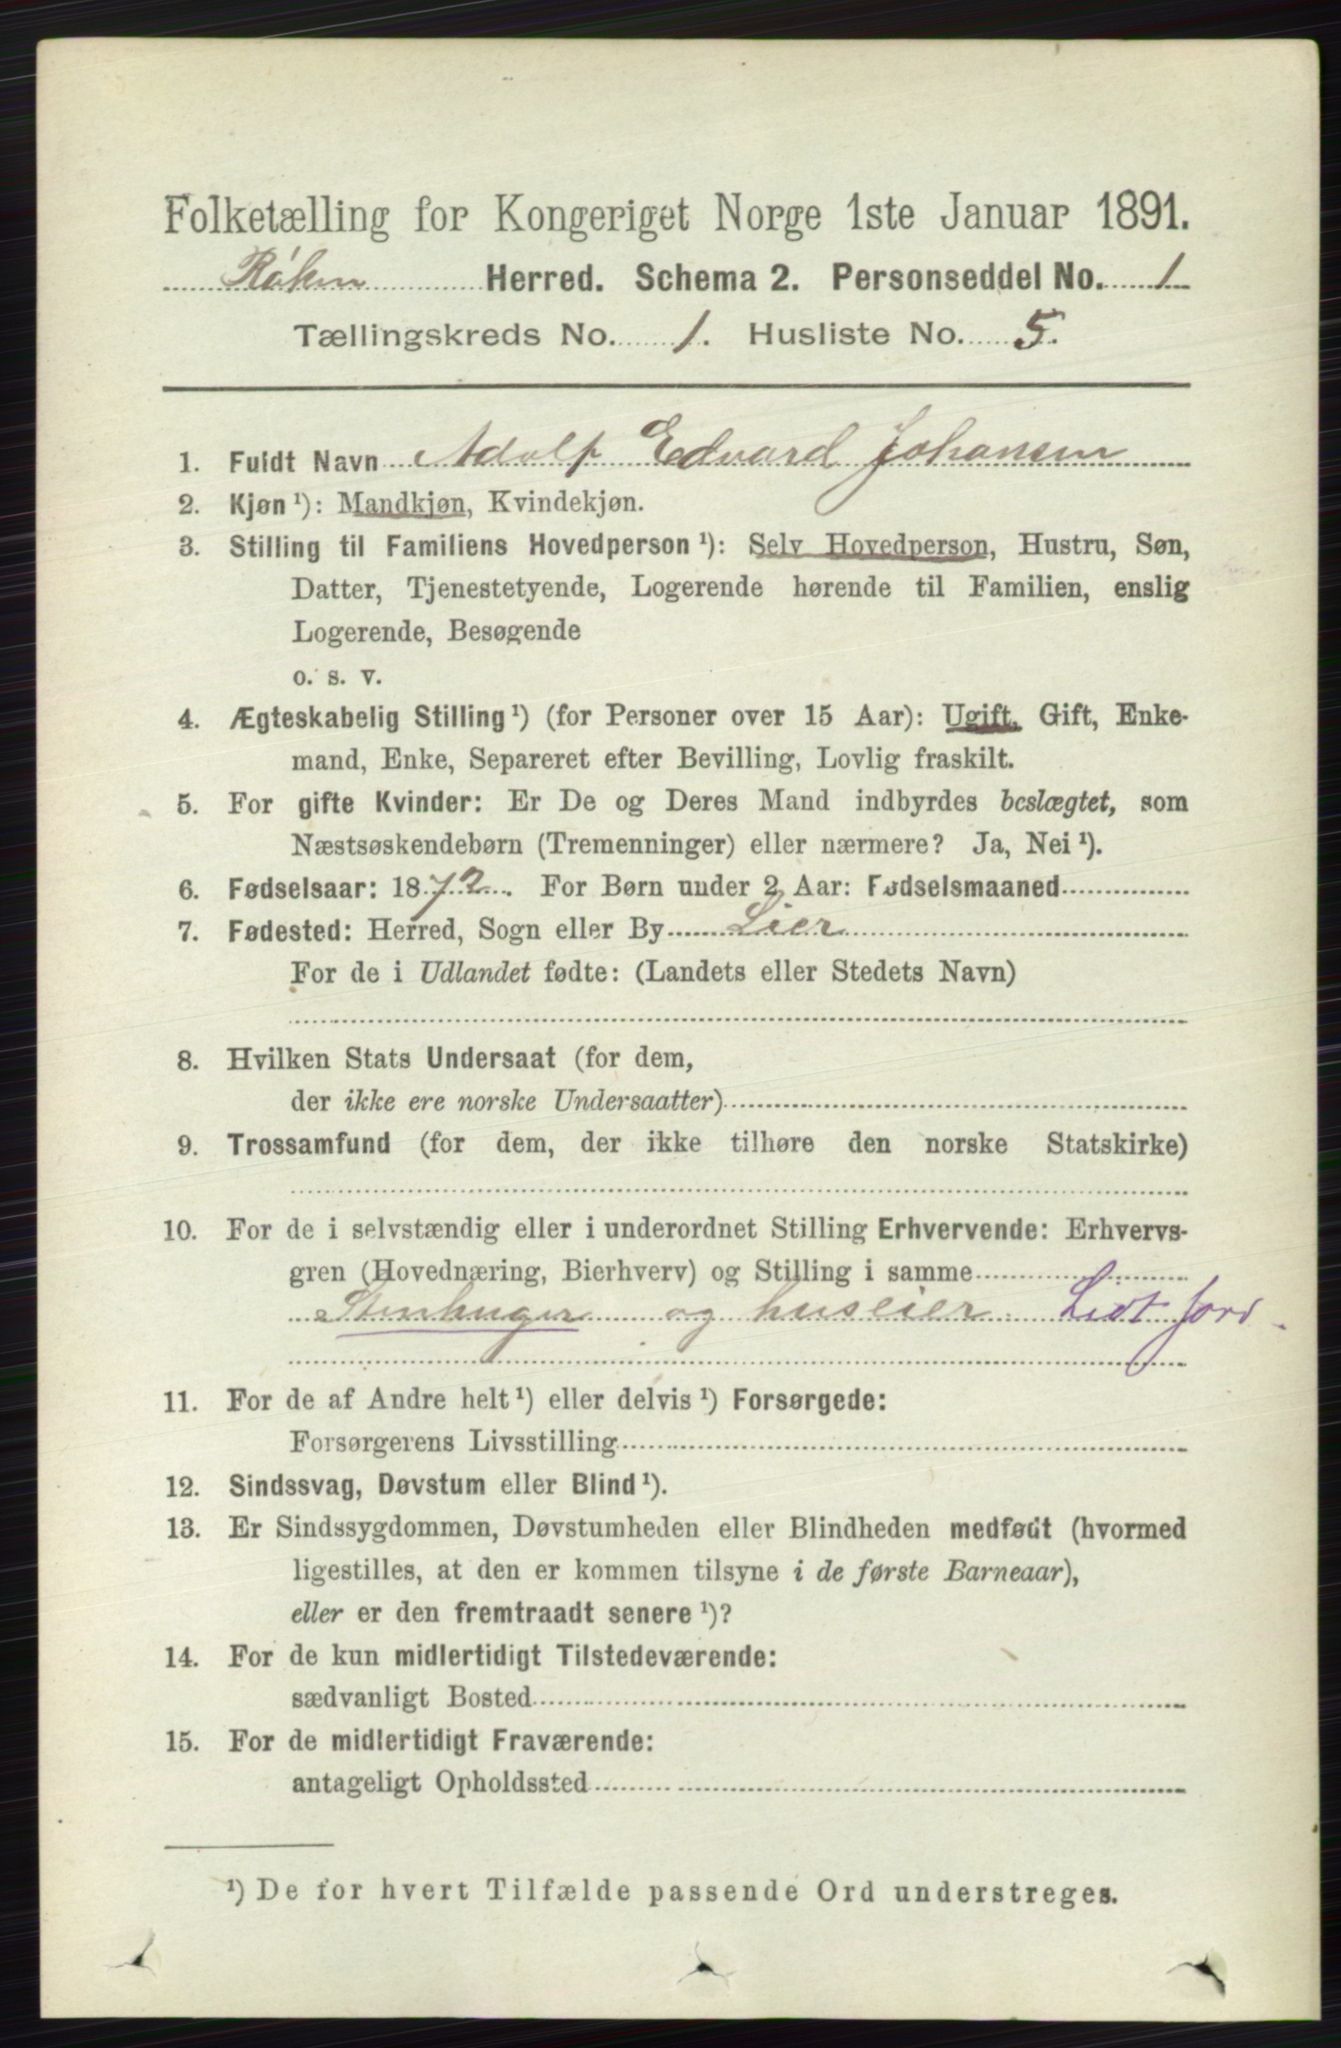 Folketælling for Kongeriget Norge 1ste Januar 1891.
Røken Herred. Schema 2. Personseddel No. 1
Tællingskreds No. 1. Husliste No. 5.
1. Fuldt Navn Adolf Edvard Johansen
2. Kjøn ¹): Mandkjøn, Kvindekjøn.
3. Stilling til Familiens Hovedperson ¹): Selv Hovedperson, Hustru, Søn,
Datter, Tjenestetyende, Logerende hørende til Familien, enslig
Logerende, Besøgende
o. s. v.
4. Ægteskabelig Stilling ¹) (for Personer over 15 Aar): Ugift, Gift, Enke-
mand, Enke, Separeret efter Bevilling, Lovlig fraskilt.
5. For gifte Kvinder: Er De og Deres Mand indbyrdes beslægtet, som
Næstsøskendebørn (Tremenninger) eller nærmere? Ja, Nei ¹).
6. Fødselsaar: 1872. For Børn under 2 Aar: Fødselsmaaned
7. Fødested: Herred, Sogn eller By Lier
For de i Udlandet fødte: (Landets eller Stedets Navn)
8. Hvilken Stats Undersaat (for dem,
der ikke ere norske Undersaatter)
9. Trossamfund (for dem, der ikke tilhøre den norske Statskirke)
10. For de i selvstændig eller i underordnet Stilling Erhvervende: Erhvervs-
gren (Hovednæring, Bierhverv) og Stilling i samme
Stenhuger og huseier. Lidt jord.
11. For de af Andre helt ¹) eller delvis ¹) Forsørgede:
Forsørgerens Livsstilling
12. Sindssvag, Døvstum eller Blind ¹).
13. Er Sindssygdommen, Døvstumheden eller Blindheden medfødt (hvormed
ligestilles, at den er kommen tilsyne i de første Barneaar),
eller er den fremtraadt senere ¹)?
14. For de kun midlertidigt Tilstedeværende:
sædvanligt Bosted
15. For de midlertidigt Fraværende:
antageligt Opholdssted
¹) De for hvert Tilfælde passende Ord understreges.